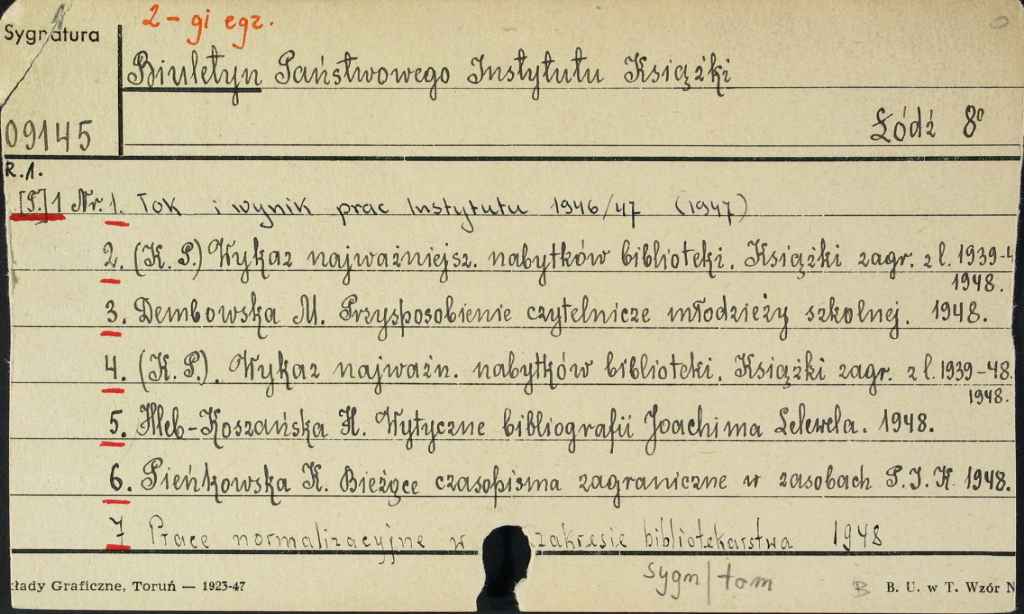 2-gi egz.
Sygnatura
Biuletyn Państwowego Instytutu Książki
09145
Łódź 8°
R.1.
[T.]1 Nr. 1. Tok i wynik prac Instytutu 1946/47 (1947)
2. (K. P.) Wykaz najważniejsz. nabytków biblioteki. Książki zagr. z l. 1939-4
1948.
3. Dembowska M. Przysposobienie czytelnicze młodzieży szkolnej. 1948.
4. (K. P.). Wykaz najważn. nabytków biblioteki. Książki zagr. z l. 1939-48.
1948.
5. Hleb-Koszańska H. Wytyczne bibliografii Joachima Lelewela. 1948.
6. Pieńkowska K. Bieżące czasopisma zagraniczne w zasobach P. I. K. 1948.
7 Prace normalizacyjne w zakresie bibliotekarstwa 1948
sygn/tom
kłady Graficzne, Toruń — 1923-47
B B. U. w T. Wzór N